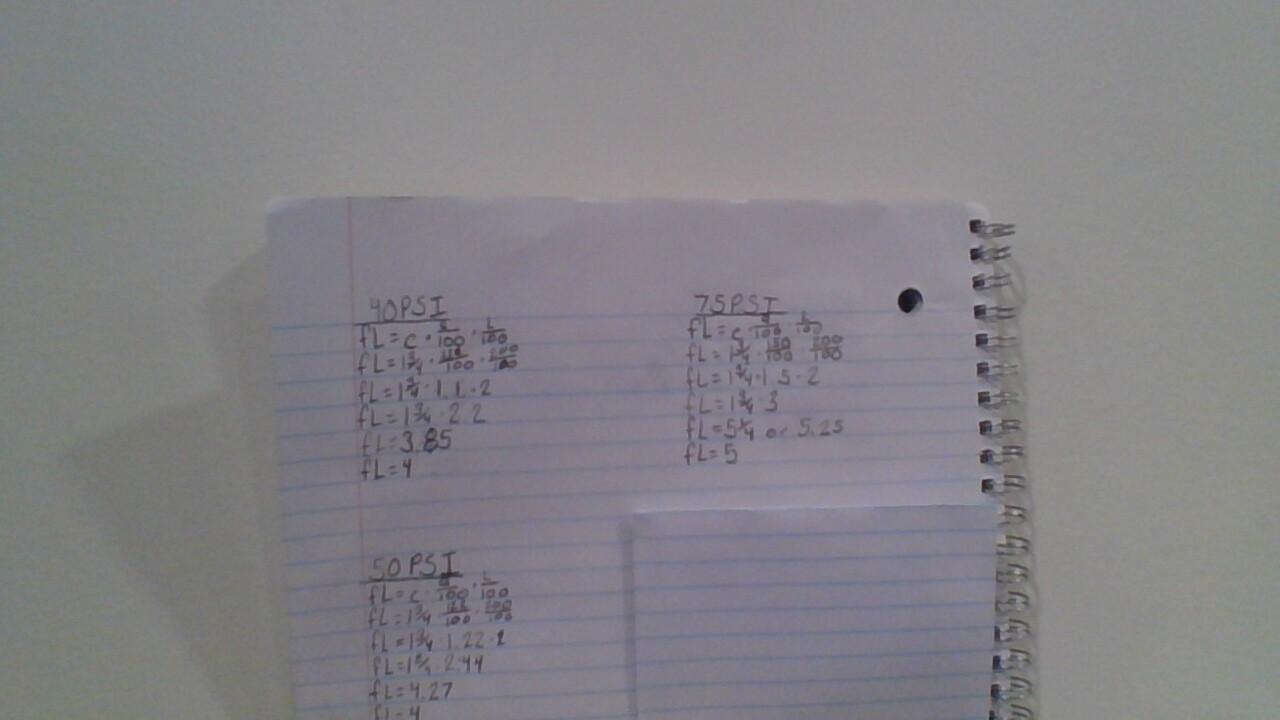 40PSI
fL = c · Q/100 · L/100
fL = 1 3/4 · 110/100 · 200/100
fL = 1 3/4 · 1.1 · 2
fL = 1 3/4 · 2.2
fL = 3.85
fL = 4
75PSI
fL = c · Q/100 · L/100
fL = 1 3/4 · 150/100 · 200/100
fL = 1 3/4 · 1.5 · 2
fL = 1 3/4 · 3
fL = 5 1/4 or 5.25
fL = 5
50 PSI
fL = c · Q/100 · L/100
fL = 1 3/4 · 122/100 · 200/100
fL = 1 3/4 · 1.22 · 2
fL = 1 3/4 · 2.44
fL = 4.27
fL = 4